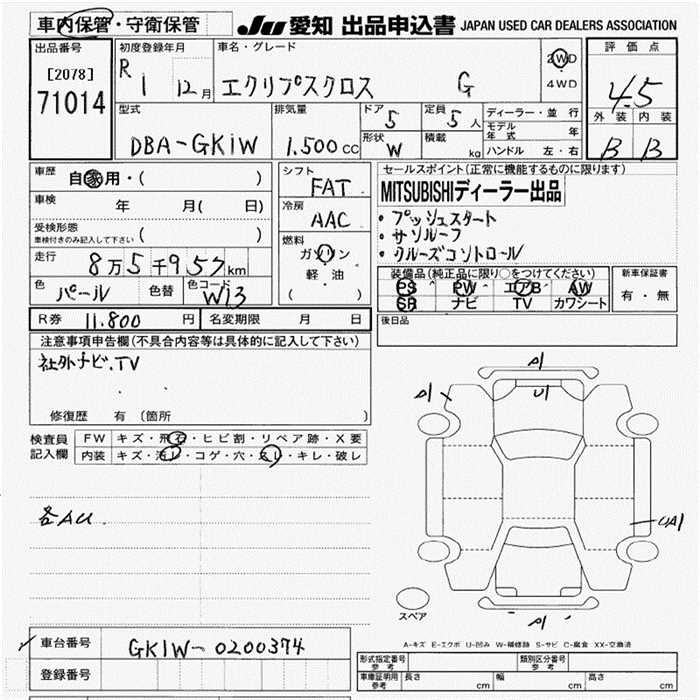 車内保管・守衛保管
JU 愛知 出品申込書 JAPAN USED CAR DEALERS ASSOCIATION
出品番号
[2078]
71014
初度登録年月
R 1 12月
車名・グレード
エクリプスクロス G
2WD
4WD
評価点
4.5
外装 内装
B B
型式
DBA-GK1W
排気量
1.500cc
ドア 5
形状 W
定員 5人
積載 kg
ディーラー・並行
モデル年式 年
ハンドル 左・右
車歴 自家用・( )
車検 年 月( 日)
受検形態
車検付きのみ記入して下さい ( )
走行 8万5千957km
色 パール 色替 色コード W13
シフト
FAT
冷房
AAC
燃料
ガソリン
軽・油
( )
セールスポイント(正常に機能するものに限ります)
MITSUBISHIディーラー出品
・プッシュスタート
・サンルーフ
・クルーズコントロール
装備品(純正品に限り○をつけてください)
PS PW エアB AW
SR ナビ TV カワシート
新車保証書
有・無
R券 11.800円 名変期限 月 日
後日品
注意事項申告欄(不具合内容等は具体的に記入して下さい)
社外ナビ.TV
修復歴 有(箇所 )
検査員記入欄
FW キズ・飛石・ヒビ割・リペア跡・X要
内装 キズ・汚レ・コゲ・穴・スレ・キレ・破レ
各AU.
A1
A1
U1
UA1
A1
スペア
A-キズ E-エクボ U-凹み W-補修跡 S-サビ C-腐食 XX-交換済
車台番号 GK1W-0200374
登録番号
形式指定番号 参考
類別区分番号 参考
車庫証明用 参考 長さ cm 幅 cm 高さ cm